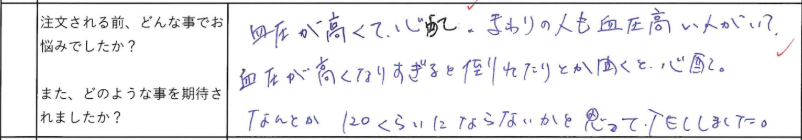 注文される前、どんな事でお
悩みでしたか？
また、どのような事を期待さ
れましたか？
血圧が高くて、心配で。まわりの人も血圧高い人がいて、
血圧が高くなりすぎると倒れたりとか聞くと、心配。
なんとか120くらいにならないかと思って、TELしました。